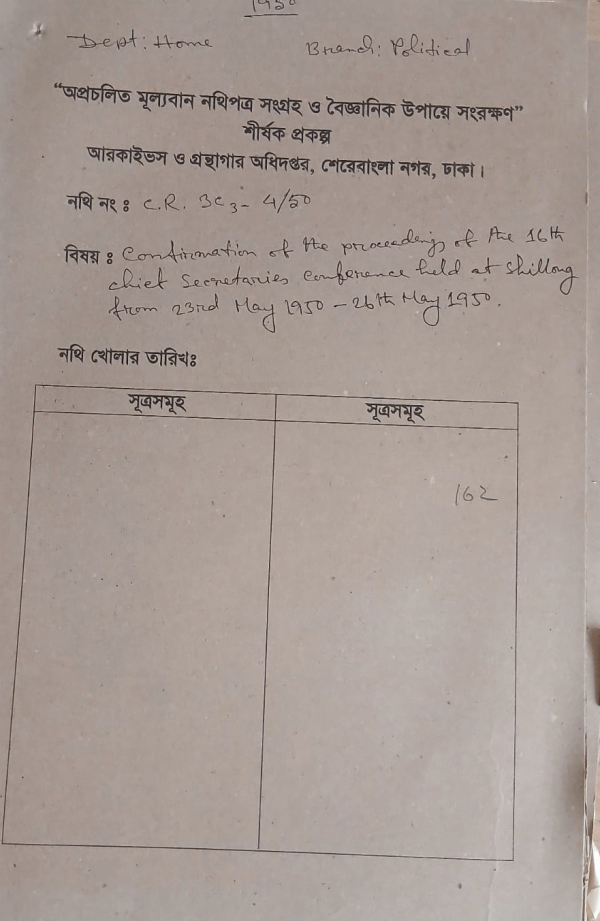 1950
Dept: Home Branch: Political
“অপ্রচলিত মূল্যবান নথিপত্র সংগ্রহ ও বৈজ্ঞানিক উপায়ে সংরক্ষণ”
শীর্ষক প্রকল্প
আরকাইভস ও গ্রন্থাগার অধিদপ্তর, শেরেবাংলা নগর, ঢাকা।
নথি নং : C.R. 3C3 - 4/50
বিষয় : Confirmation of the proceedings of the 16th
chief Secretaries conference held at Shillong
from 23rd May 1950 - 26th May 1950.
নথি খোলার তারিখঃ
সূত্রসমূহ সূত্রসমূহ
162